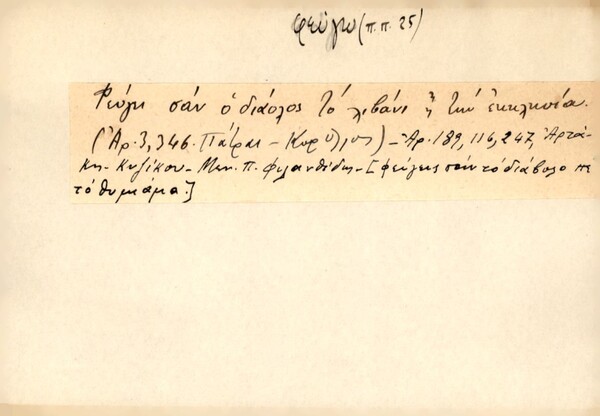 φεύγω (π.π. 25)
Φεύγει σάν ὁ διάολος τό λιβάνι ἤ τήν ἐκκλησία.
(Ἀρ. 3, 346. Πάτραι - Κορύλλος) - Ἀρ. 189, 116, 247, Ἀρτά-
κη - Κυζίκου - Μεν. π. Φιλανθίδης - [φεύγεις σάν τό διάβολο
τό θυμίαμα.]